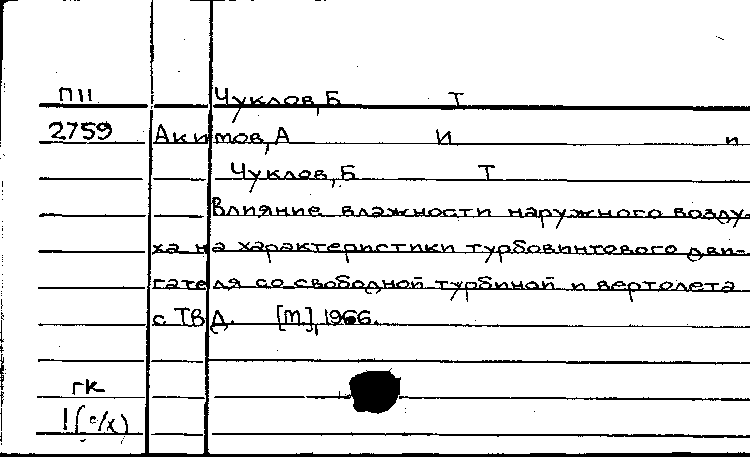 П11 Чуклов, Б Т
2759 Акимов, А И и
Чуклов, Б Т
Влияние влажности наружного возду-
ха на характеристики турбовинтового дви-
гателя со свободной турбиной и вертолета
с ТВД. [М.], 1966.
гк
1(с/х)